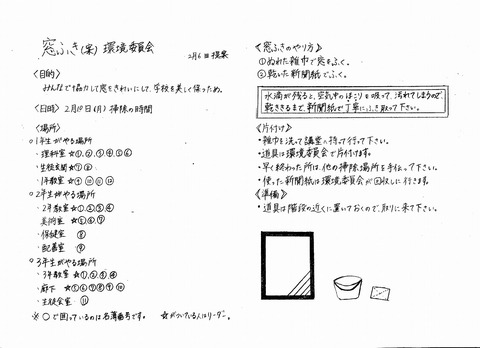 窓ふき(案) 環境委員会
2月6日 提案
〈目的〉
みんなで協力して窓をきれいにして、学校を美しく保つため。
〈日時〉 2月10日(月) 掃除の時間
〈場所〉
○1年生がやる場所
・理科室 ☆①,②,③,④,⑤,⑥
・生徒玄関 ☆⑦⑧
・1年教室 ☆⑨⑩⑪⑫
○2年生がやる場所
・2年教室 ☆①②③④
美術室 ☆⑤⑥⑦
・保健室 ⑧
・配善室 ⑨
○3年生がやる場所
・3年教室 ☆①,②,③,④
・廊下 ☆⑤⑥⑦⑧⑨⑩
・生徒会室 ⑪
※○で囲っているのは名簿番号です。 ☆がついている人はリーダー。
《窓ふきのやり方》
①ぬれた雑巾で窓をふく。
②乾いた新聞紙でふく。
水滴が残ると、空気中のほこりを吸って、汚れてしまうので、
乾ききるまで、新聞紙で丁寧にふき取って下さい。
《片付け》
・雑巾を洗って講堂へ持って行って下さい。
・道具は環境委員会で片付けます。
・早く終わった所は、他の掃除場所を手伝って下さい。
・使った新聞紙は環境委員会が回収しに行きます。
《準備》
・道具は階段の近くに置いておくので、取りに来て下さい。